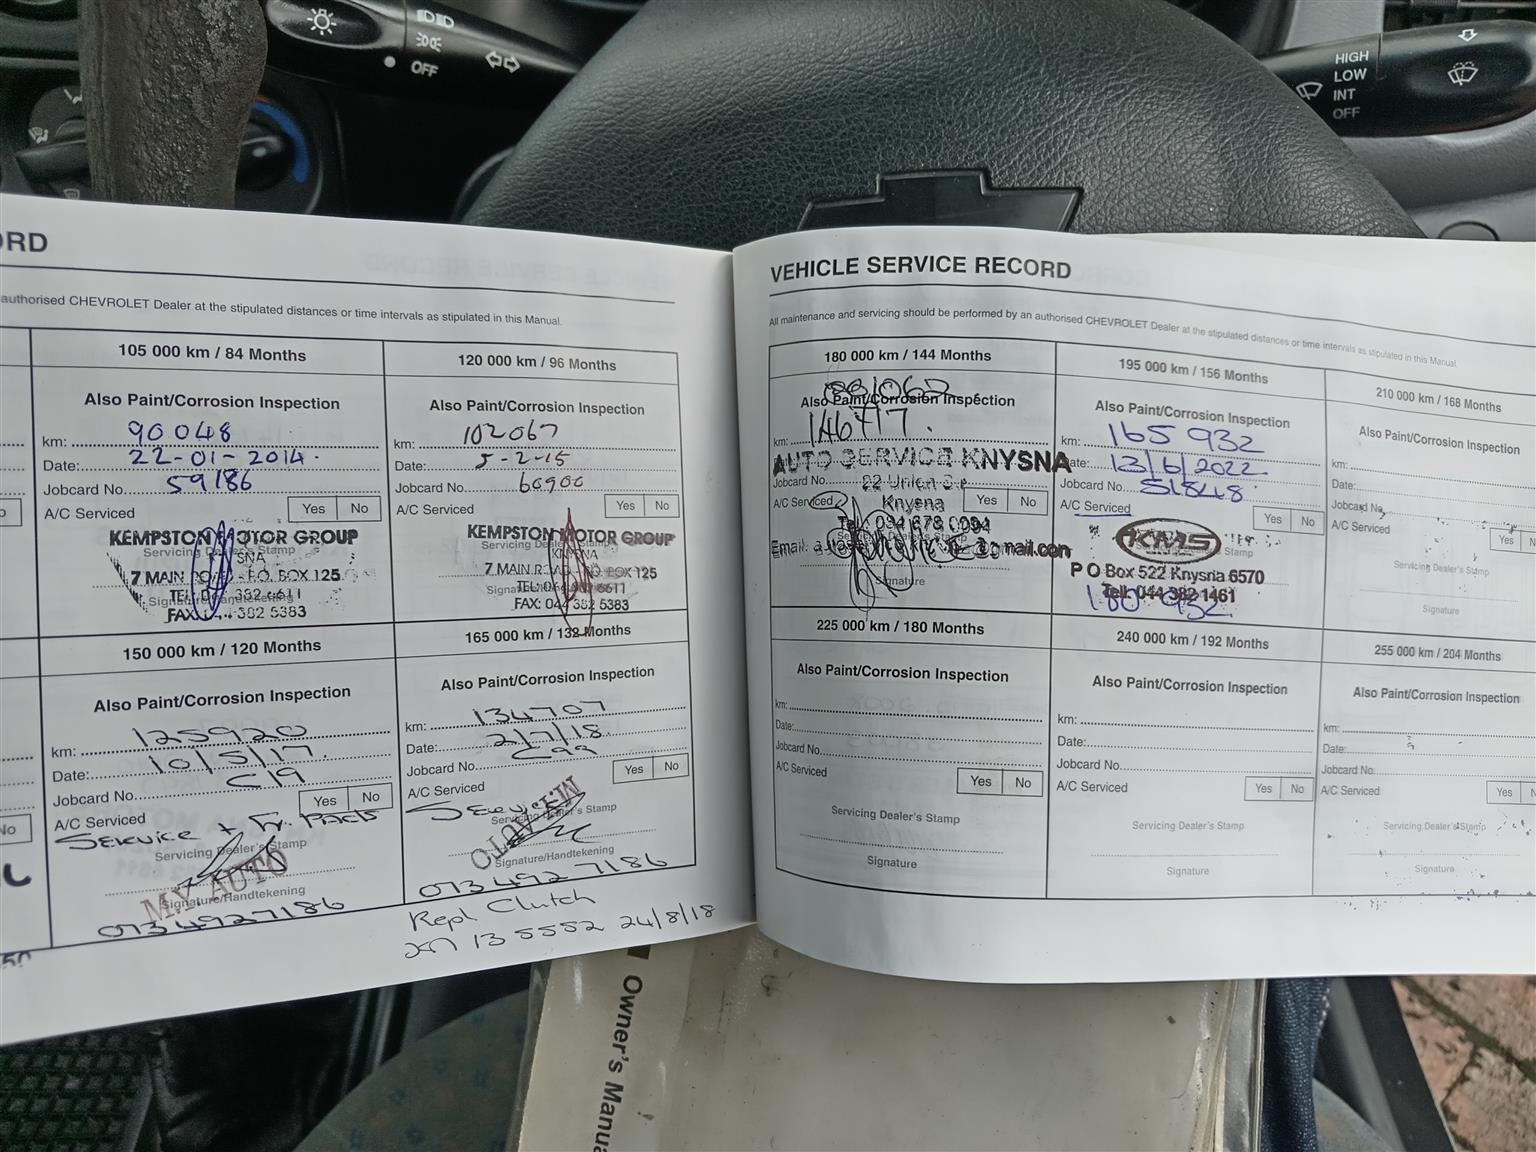 OFF
HIGH
LOW
INT
OFF
ORD
authorised CHEVROLET Dealer at the stipulated distances or time intervals as stipulated in this Manual.
105 000 km / 84 Months
Also Paint/Corrosion Inspection
km: 90048
Date: 22-01-2014.
Jobcard No. 59186
A/C Serviced Yes No
KEMPSTON MOTOR GROUP
Servicing Dealer's Stamp
7 MAIN ROAD - P.O. BOX 125
Signature/Handtekening
TEL: 044 382 6611
FAX: 044 382 5383
120 000 km / 96 Months
Also Paint/Corrosion Inspection
km: 102067
Date: 5-2-15
Jobcard No. 60900
A/C Serviced Yes No
KEMPSTON MOTOR GROUP
KNYSNA
7 MAIN ROAD - P.O. BOX 125
TEL: 044 382 6611
FAX: 044 382 5383
150 000 km / 120 Months
Also Paint/Corrosion Inspection
km: 125920
Date: 10/5/17.
Jobcard No. C19
A/C Serviced Yes No
Service +
Servicing Dealer's Stamp
MY AUTO
Signature/Handtekening
0734927186
165 000 km / 132 Months
Also Paint/Corrosion Inspection
km: 134707
Date: 2/7/18.
Jobcard No. C99
A/C Serviced Yes No
Service
Servicing Dealer's Stamp
Signature/Handtekening
073 492 7186
Repl Clutch
135552 24/8/18
No
VEHICLE SERVICE RECORD
All maintenance and servicing should be performed by an authorised CHEVROLET Dealer at the stipulated distances or time intervals as stipulated in this Manual.
180 000 km / 144 Months
Also Paint/Corrosion Inspection
km: 146717.
AUTO SERVICE KNYSNA
Jobcard No. 22 Union
A/C Serviced Knysna Yes No
Signature
195 000 km / 156 Months
Also Paint/Corrosion Inspection
km: 165 932
Date: 13/6/2022
Jobcard No. 51848
A/C Serviced Yes No
KMS
P O Box 522 Knysna 6570
Tell: 044 382 1461
180 932
210 000 km / 168 Months
Also Paint/Corrosion Inspection
km:
Date:
Jobcard No.
A/C Serviced Yes N
Servicing Dealer's Stamp
Signature
225 000 km / 180 Months
Also Paint/Corrosion Inspection
km:
Date:
Jobcard No.
A/C Serviced Yes No
Servicing Dealer's Stamp
Signature
240 000 km / 192 Months
Also Paint/Corrosion Inspection
km:
Date:
Jobcard No.
A/C Serviced Yes No
Servicing Dealer's Stamp
Signature
255 000 km / 204 Months
Also Paint/Corrosion Inspection
km:
Date:
Jobcard No.
A/C Serviced Yes N
Servicing Dealer's Stamp
Signature
Owner's Manua